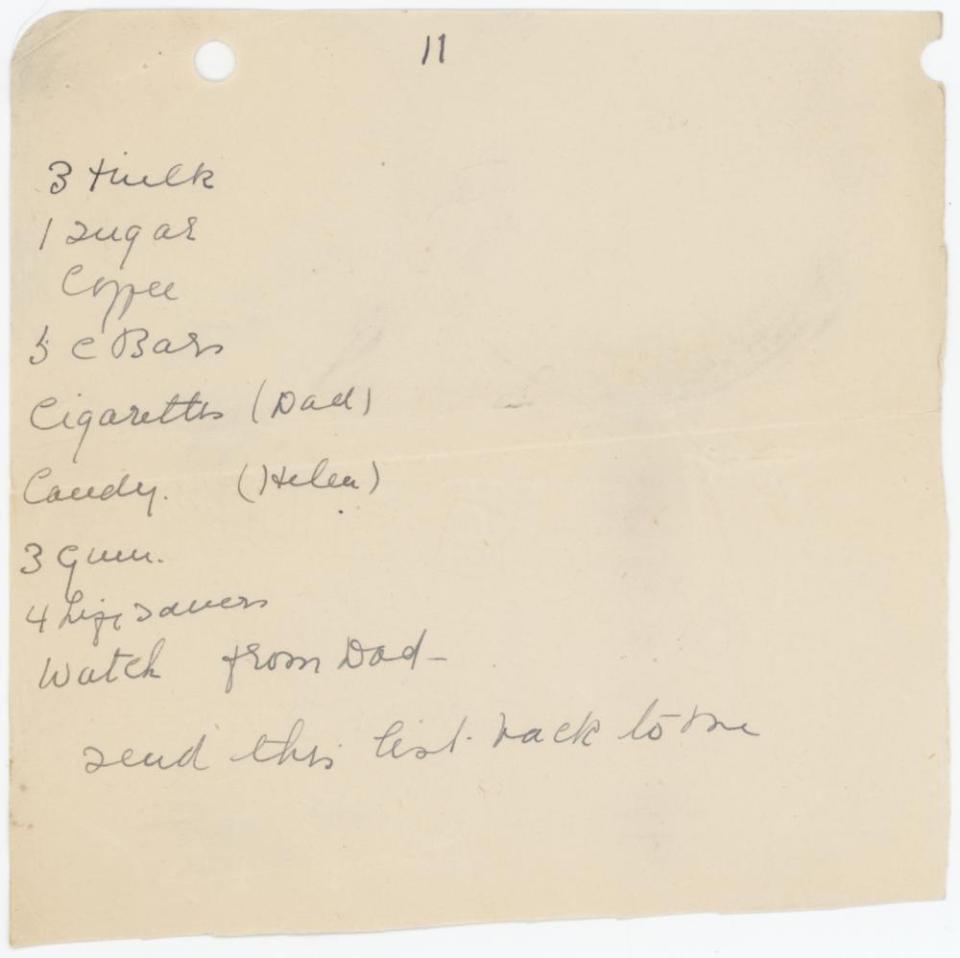 11
3 Milk
1 sugar
Coffee
5 C Bars
Cigarettes (Dad)
Candy. (Helen)
3 Gum.
4 Life savers
Watch from Dad -
send this list back to me